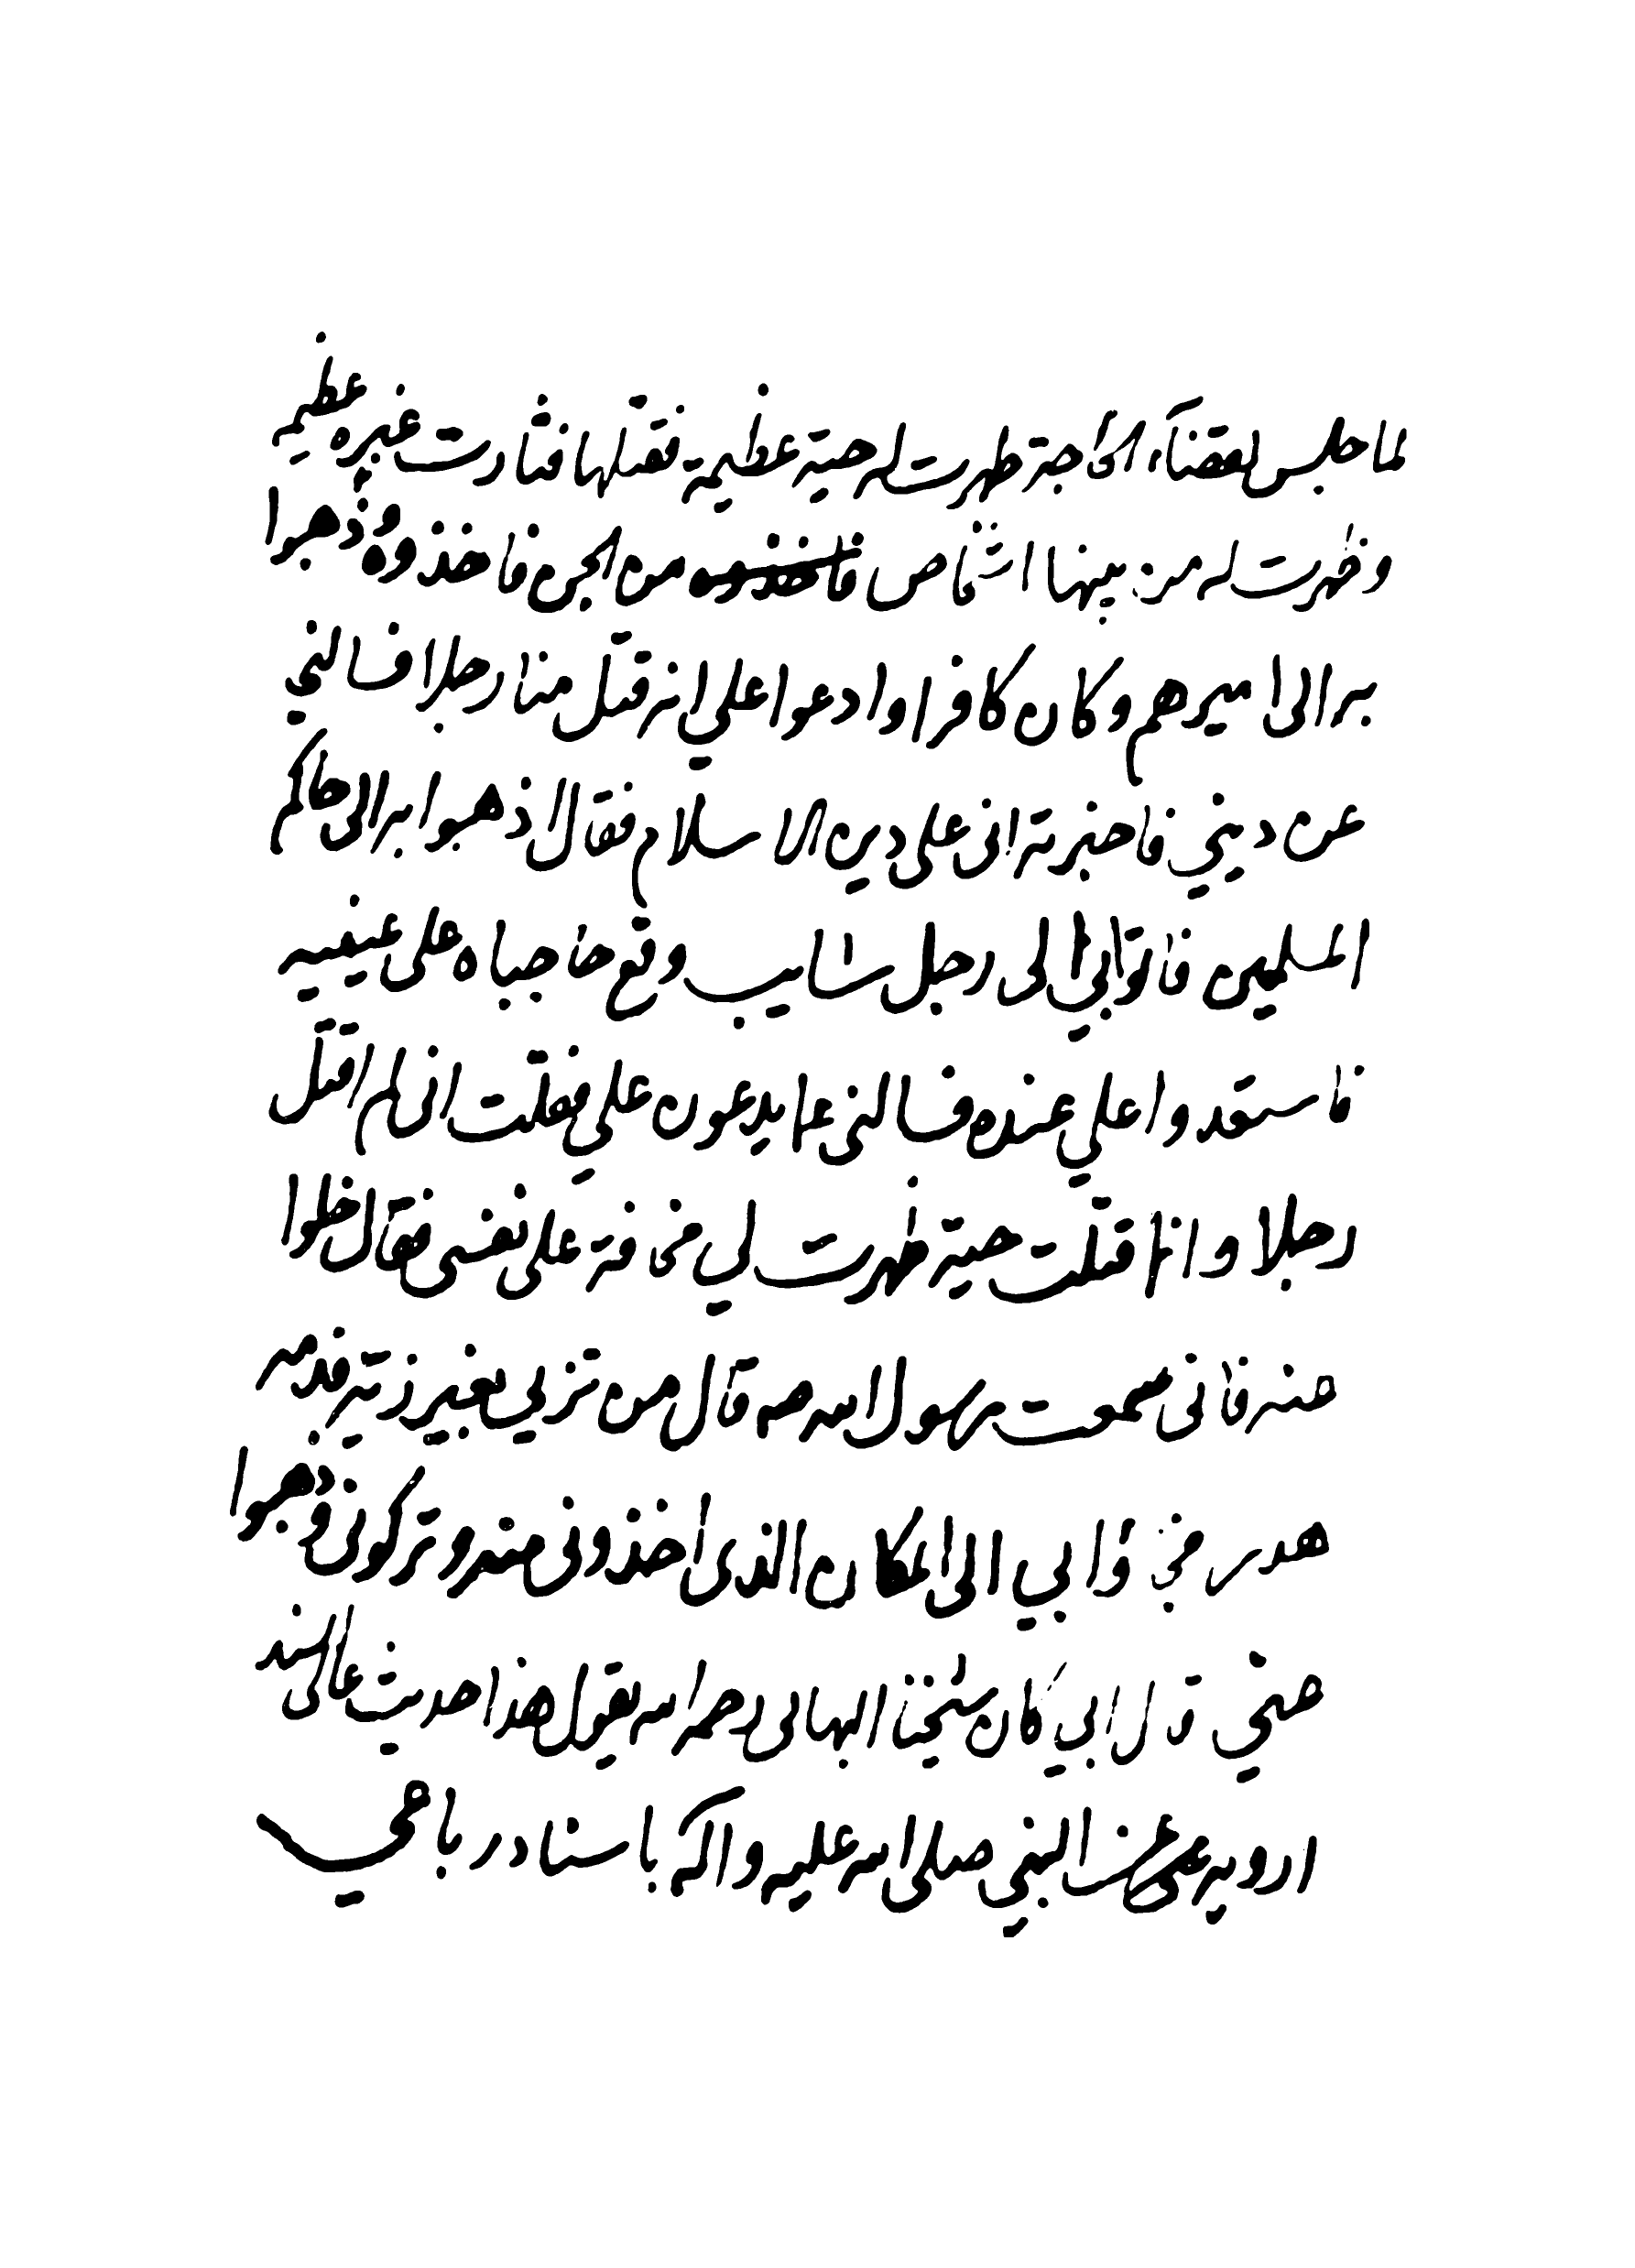 لما جلس لقضاء الحاجة ظهرت له حية عظيمة فقتلها فثارت غبره عظيمه
وظهرت له من بينها اشخاص من الجن فاخذوه وذهبوا
به الى اميرهم وكان كافرا وادعوا علي انه قتل منا رجلا فسالني
عن ديني فاخبرته انى على دين الاسلام فقال اذهبوا به الى حاكم
المسلمين فاتوا بي الى رجل شايب وقع حاجباه على عينيه
فاستعدوا علي عنده فسالني عما يدعون علي فقلت انى لم اقتل
رجلا وانما قتلت حية ظهرت لي مخافة على نفسى فقال خلوا
عنه فانى سمعت رسول الله صه قال من تزيي بغير زيه فدمه
هدر فجاؤا بي الى المكان الذى أخذونى منه وتركونى وذهبوا
عني قال ابي كان شيخنا البهائى رحمه الله يقول هذا حديث عالى السند
ارويه عن النبي صلى الله عليه وآله باسناد رباعي